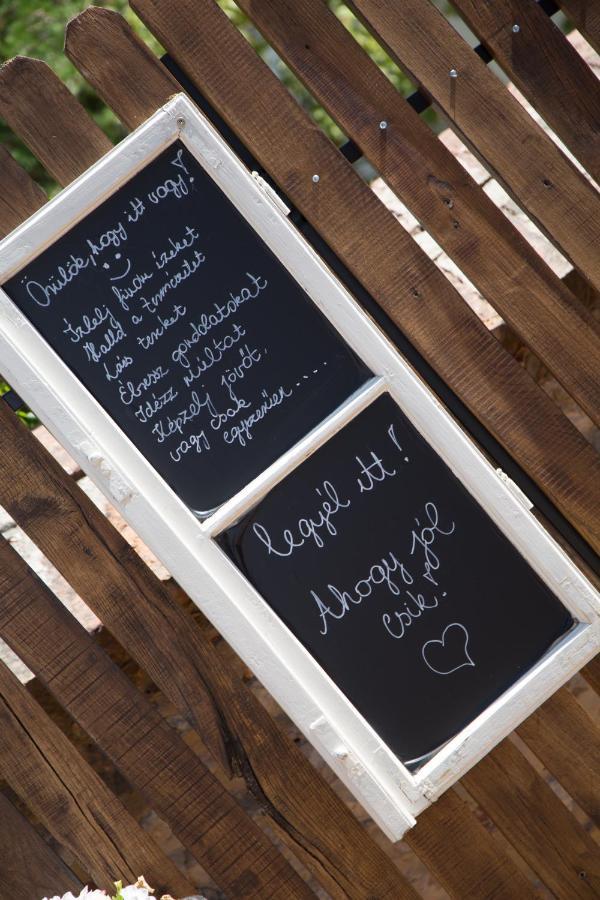 Örülök, hogy itt vagy!
Ízlelj finom ízeket
Halld a természetet
Láss tereket
Ébressz gondolatokat
Idézz múltat
Képzelj jövőt,
vagy csak
egyszerűen .....
legyél itt!
Ahogy jól
esik!